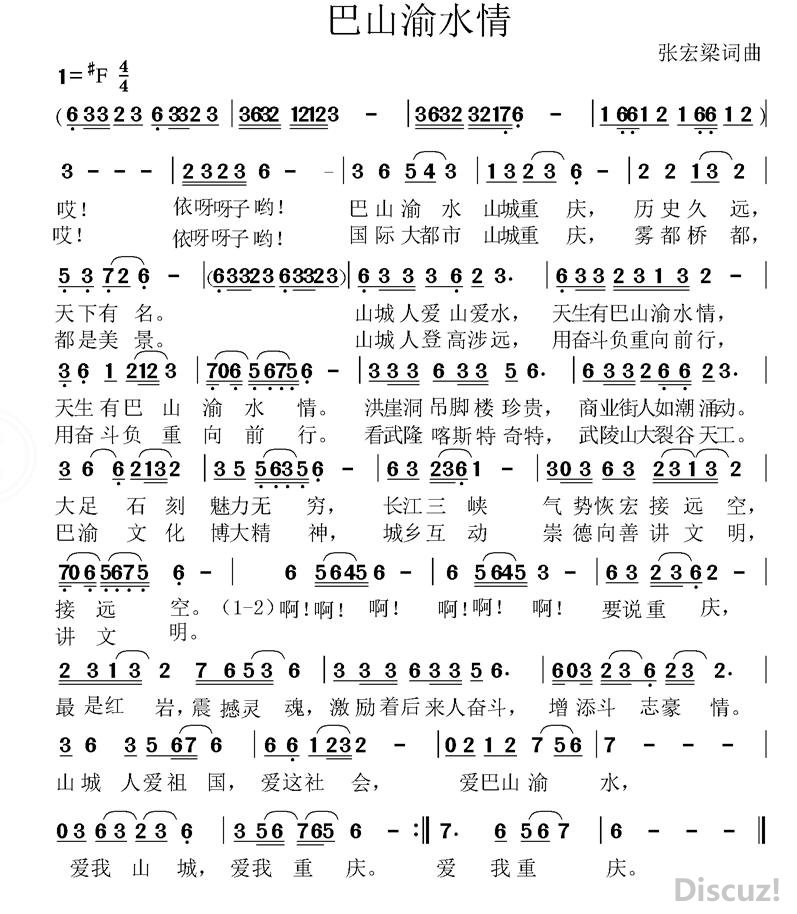 巴山渝水情
张宏梁词曲
1=♯F 4/4
(6 3323 6 3323 | 3632 12123 - | 3632 32176 - | 16612 166 12)|
3 - - - | 2323 6 - - | 3 6 543 | 1323 6 - | 2 2 13 2 |
哎! 依呀呀子哟! 巴山渝水 山城重庆, 历史久远,
哎! 依呀呀子哟! 国际大都市 山城重庆, 雾都桥都,
53 726 - |(63323 63323)| 63 33 623. | 633 2313 2 - |
天下有名。 山城人爱山爱水, 天生有巴山渝水情,
都是美景。 山城人登高涉远, 用奋斗负重向前行,
36 1 2123 | 706 56756 - | 333 633 56. | 633266 2. |
天生有巴山 渝水情。 洪崖洞吊脚楼珍贵, 商业街人如潮涌动。
用奋斗负重 向前行。 看武隆喀斯特奇特, 武陵山大裂谷天工。
36 62132 | 35 56356 - | 63 2361 - | 303 63 2313 2 |
大足石刻 魅力无穷, 长江三峡 气势恢宏接远空,
巴渝文化 博大精神, 城乡互动 崇德向善讲文明,
70 65675 6 - | 6 56456 - | 6 56453 - | 63 2362 - |
接远空。(1-2)啊!啊! 啊! 啊!啊! 啊! 要说重庆,
讲文明。
2 313 2 7 653 6 | 33 3 633 56. | 603 236 23 2. |
最是红岩,震撼灵魂, 激励着后来人奋斗, 增添斗志豪情。
36 35 676 | 66 1232 - | 0212 756 | 7 - - - |
山城人爱祖国, 爱这社会, 爱巴山渝水,
03 63 23 6 | 3 56 765 6 - :‖ 7. 6 567 | 6 - - - ‖
爱我山城, 爱我重庆。 爱我重庆。
Discuz!